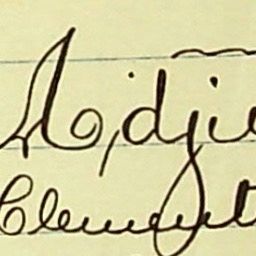 Adju
Clement